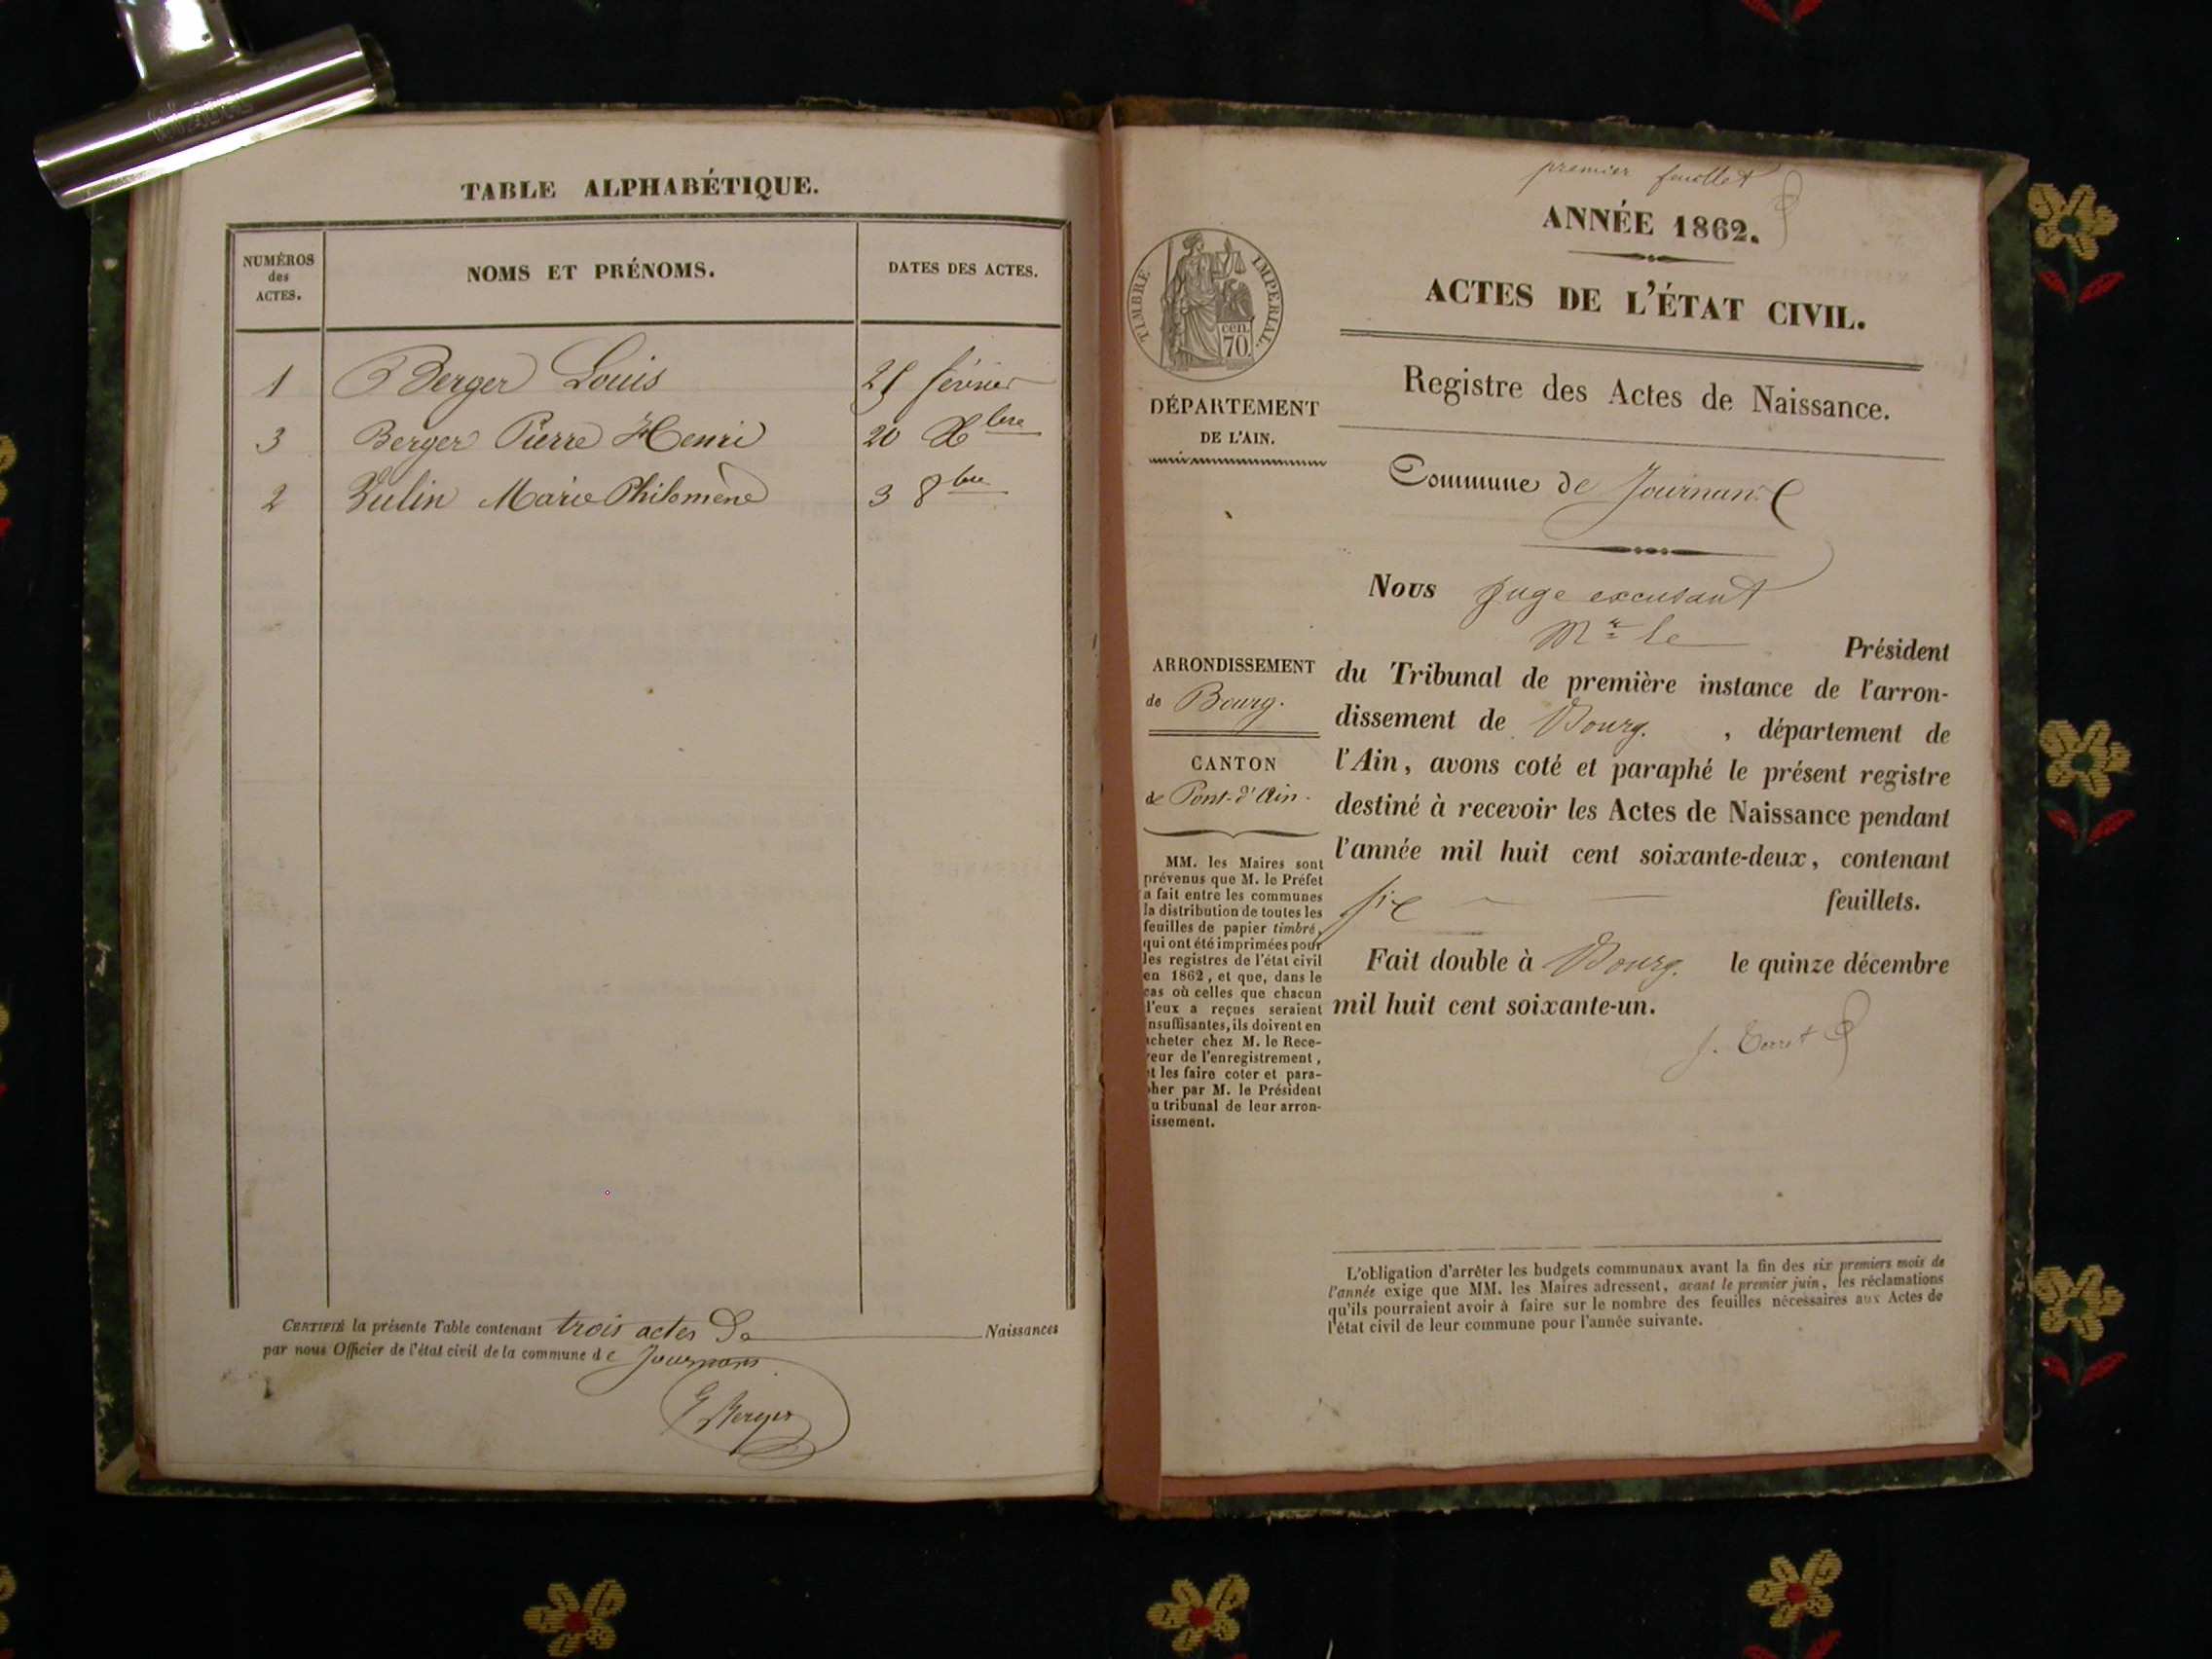 TABLE ALPHABÉTIQUE.
NUMÉROS des ACTES.
NOMS ET PRÉNOMS.
DATES DES ACTES.
1 Berger Louis février
3 Berger Pierre Henri 20 Xbre
2 Vulin Marie Philomène 3 8bre
CERTIFIÉ la présente Table contenant trois actes De Naissances
par nous Officier de l'état civil de la commune de Journans
Berger
premier feuillet
ANNÉE 1862.
ACTES DE L'ÉTAT CIVIL.
TIMBRE IMPÉRIAL.
cen.
70.
DÉPARTEMENT
DE L'AIN.
Registre des Actes de Naissance.
Commune de Journans
Nous juge excusant
Mr le Président
du Tribunal de première instance de l'arron-
dissement de Bourg. , département de
l'Ain, avons coté et paraphé le présent registre
destiné à recevoir les Actes de Naissance pendant
l'année mil huit cent soixante-deux, contenant
six feuillets.
Fait double à Bourg. le quinze décembre
mil huit cent soixante-un.
ARRONDISSEMENT
de Bourg.
CANTON
de Pont-d'Ain.
MM. les Maires sont
prévenus que M. le Préfet
a fait entre les communes
la distribution de toutes les
feuilles de papier timbré,
qui ont été imprimées pour
les registres de l'état civil
en 1862, et que, dans le
cas où celles que chacun
d'eux a reçues seraient
insuffisantes, ils doivent en
acheter chez M. le Rece-
veur de l'enregistrement,
et les faire coter et para-
pher par M. le Président
du tribunal de leur arron-
issement.
L'obligation d'arrêter les budgets communaux avant la fin des six premiers mois de
l'année exige que MM. les Maires adressent, avant le premier juin, les réclamations
qu'ils pourraient avoir à faire sur le nombre des feuilles nécessaires aux Actes de
l'état civil de leur commune pour l'année suivante.